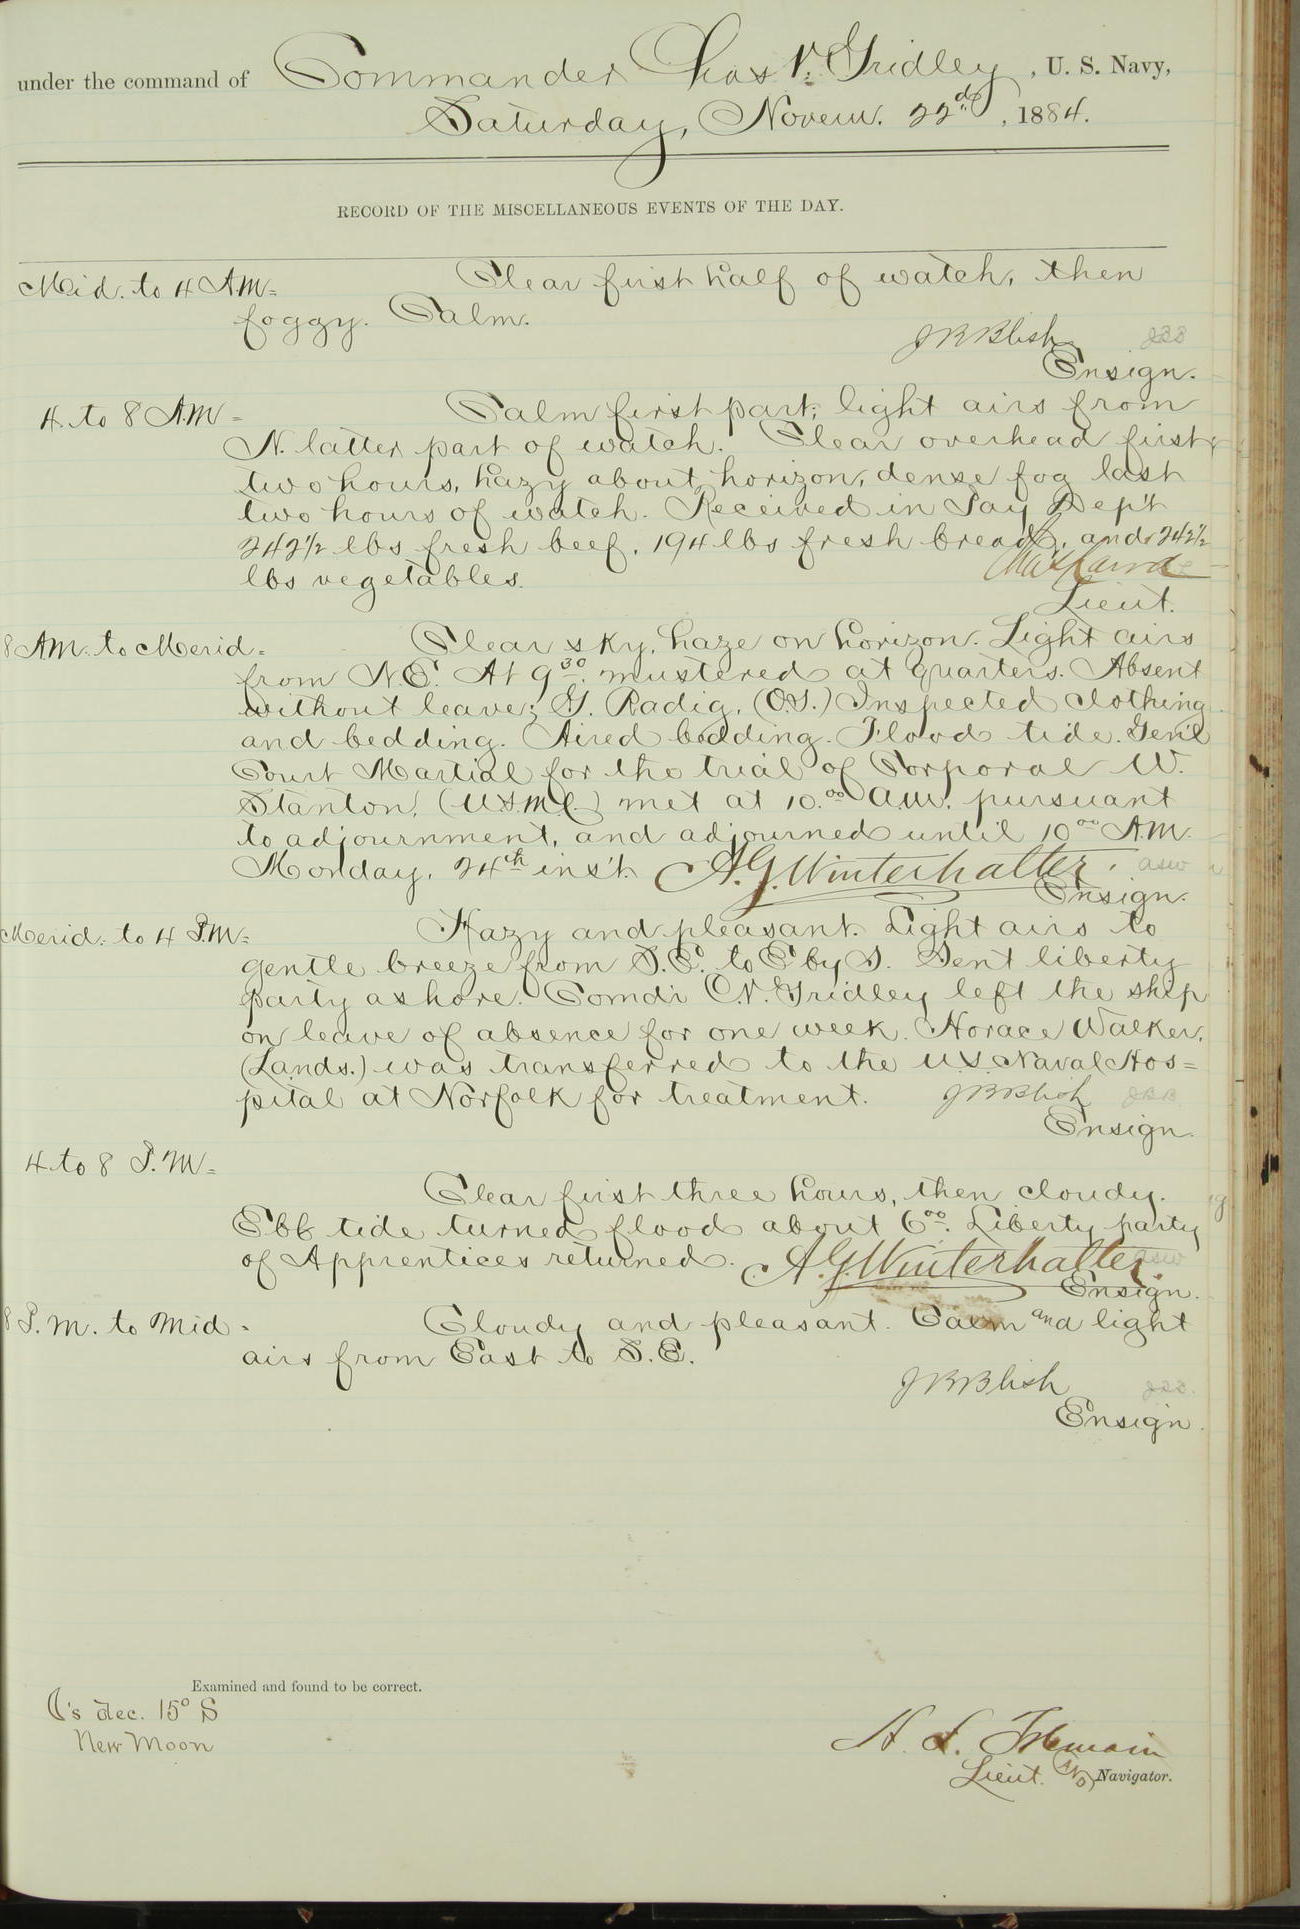 under the command of Commander Chas V. Gridley, U. S. Navy,
Saturday, Novem. 22d, 1884.
RECORD OF THE MISCELLANEOUS EVENTS OF THE DAY.
Mid. to 4 AM= Clear first half of watch, then
foggy. Calm.
JBBlish JBB
Ensign.
4 to 8 AM= Calm first part, light airs from
N. latter part of watch. Clear overhead first
two hours, hazy about horizon, dense fog last
two hours of watch. Received in Pay Dep't
242½ lbs fresh beef, 194 lbs fresh bread, and 242½
lbs vegetables.
Lieut.
8 AM. to Merid= Clear sky, haze on horizon. Light airs
from N.E. At 9 30 mustered at quarters. Absent
without leave; G. Radig, (O.S.) Inspected clothing
and bedding. Aired bedding. Flood tide. Gen'l
Court Martial for the trial of Corporal W.
Stanton, (U.S.M.C.) met at 10.00 A.M. pursuant
to adjournment, and adjourned until 10 00 A.M.
Monday, 24th inst. A.G. Winterhalter. asw
Ensign.
Merid. to 4 P.M= Hazy and pleasant. Light airs to
gentle breeze from S.E. to E by S. Sent liberty
party ashore. Comd'r C.V. Gridley left the ship
on leave of absence for one week. Horace Walker,
(Lands.) was transferred to the U.S. Naval Hos=
pital at Norfolk for treatment. JBBlish JBB.
Ensign.
4 to 8 P.M=
Clear first three hours, then cloudy.
Ebb tide turned flood about 6 00. Liberty party
of Apprentices returned. A.G. Winterhalter. asw
Ensign.
8 P.M. to Mid. Cloudy and pleasant. Calm and light
airs from East to S.E.
JBBlish JBB.
Ensign.
Examined and found to be correct.
☾'s dec. 15° S
New Moon
H. L.
Lieut. Navigator.